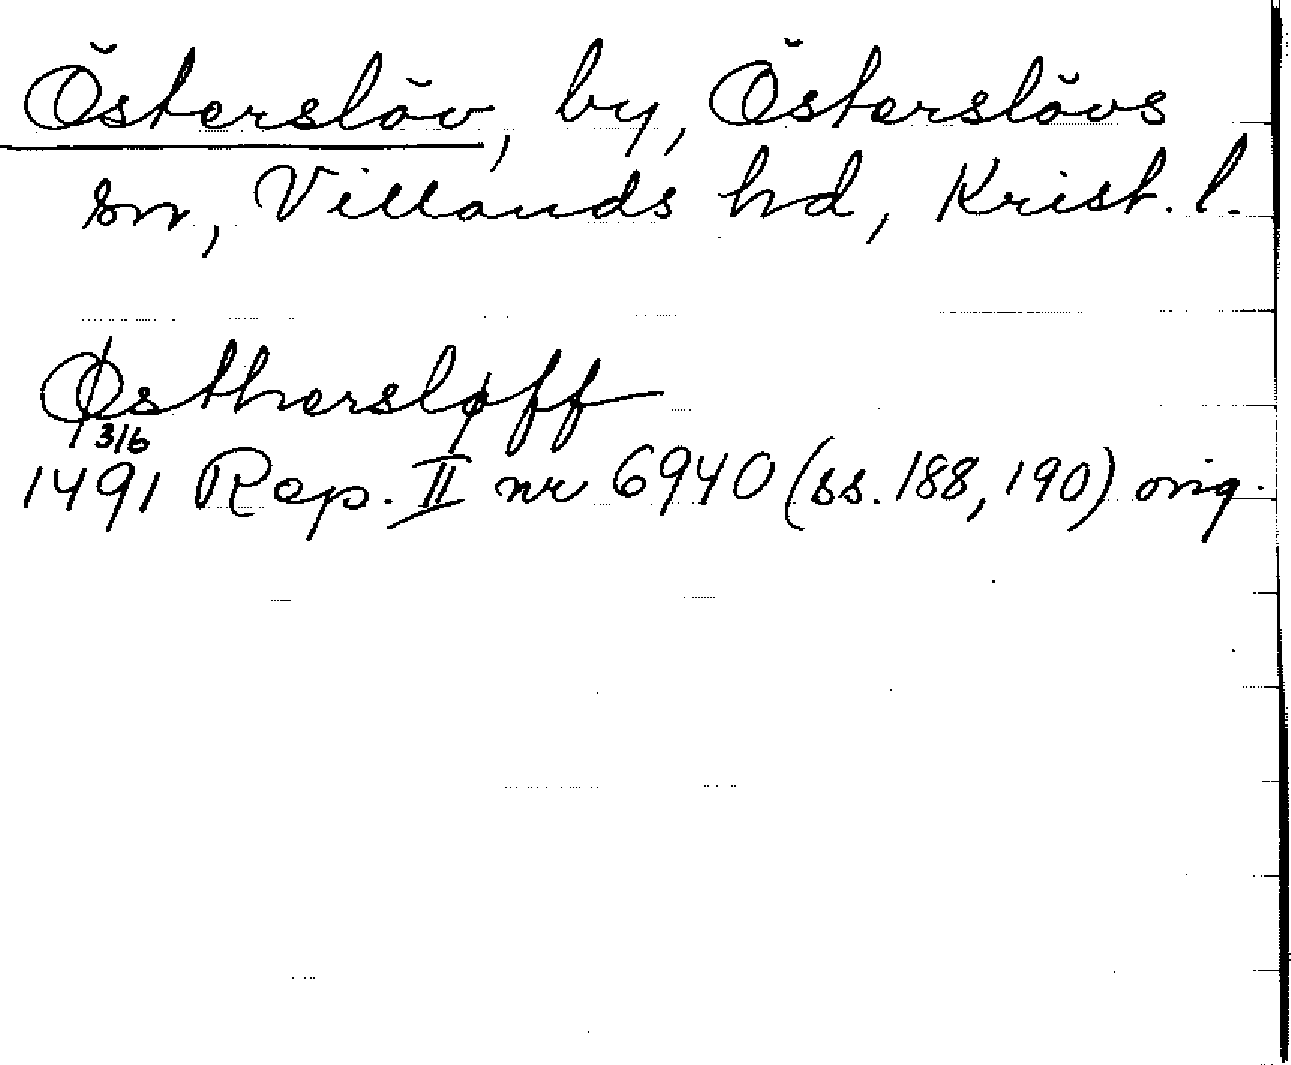 Österslöv, by, Österslövs
sn, Villands hd, Krist. l.
Østhersløff
3/6
1491 Rep. II nr 6940 (ss. 188, 190) orig.